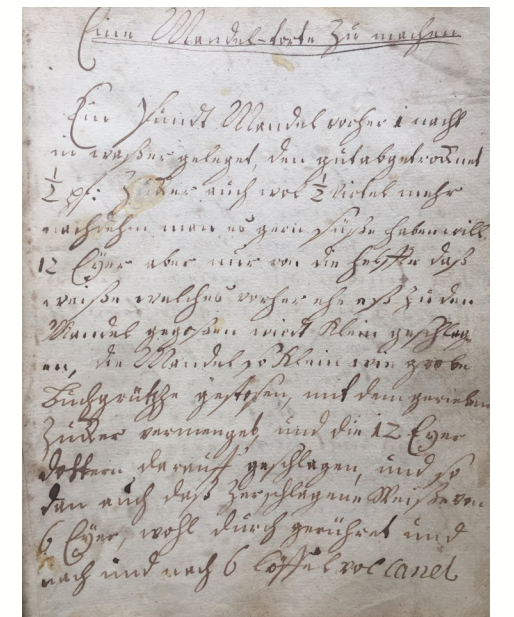 Eine Mandel-torte zu machen
Ein Pfundt Mandel vorher 1 nacht
in waßer geleget, den gut abgetrocknet
½ pf: Zucker auch wol ½ virtel mehr
nachdehm man es gern süße haben will
12 Eÿer aber nur von die helffte daß
weiße welches vorher ehe eß zu den
Mandel gegoßen wird Klein geschlag
en, die Mandel so Klein wie grobe
Buchgrütze gestoßen, mit dem gerieben
Zucker vermenget, und die 12 Eÿer
dottern darauff geschlagen, und so
dan auch daß zerschlagene Weiße von
6 Eÿer, wohl durch gerühret und
nach und nach 6 löffel vol Canel